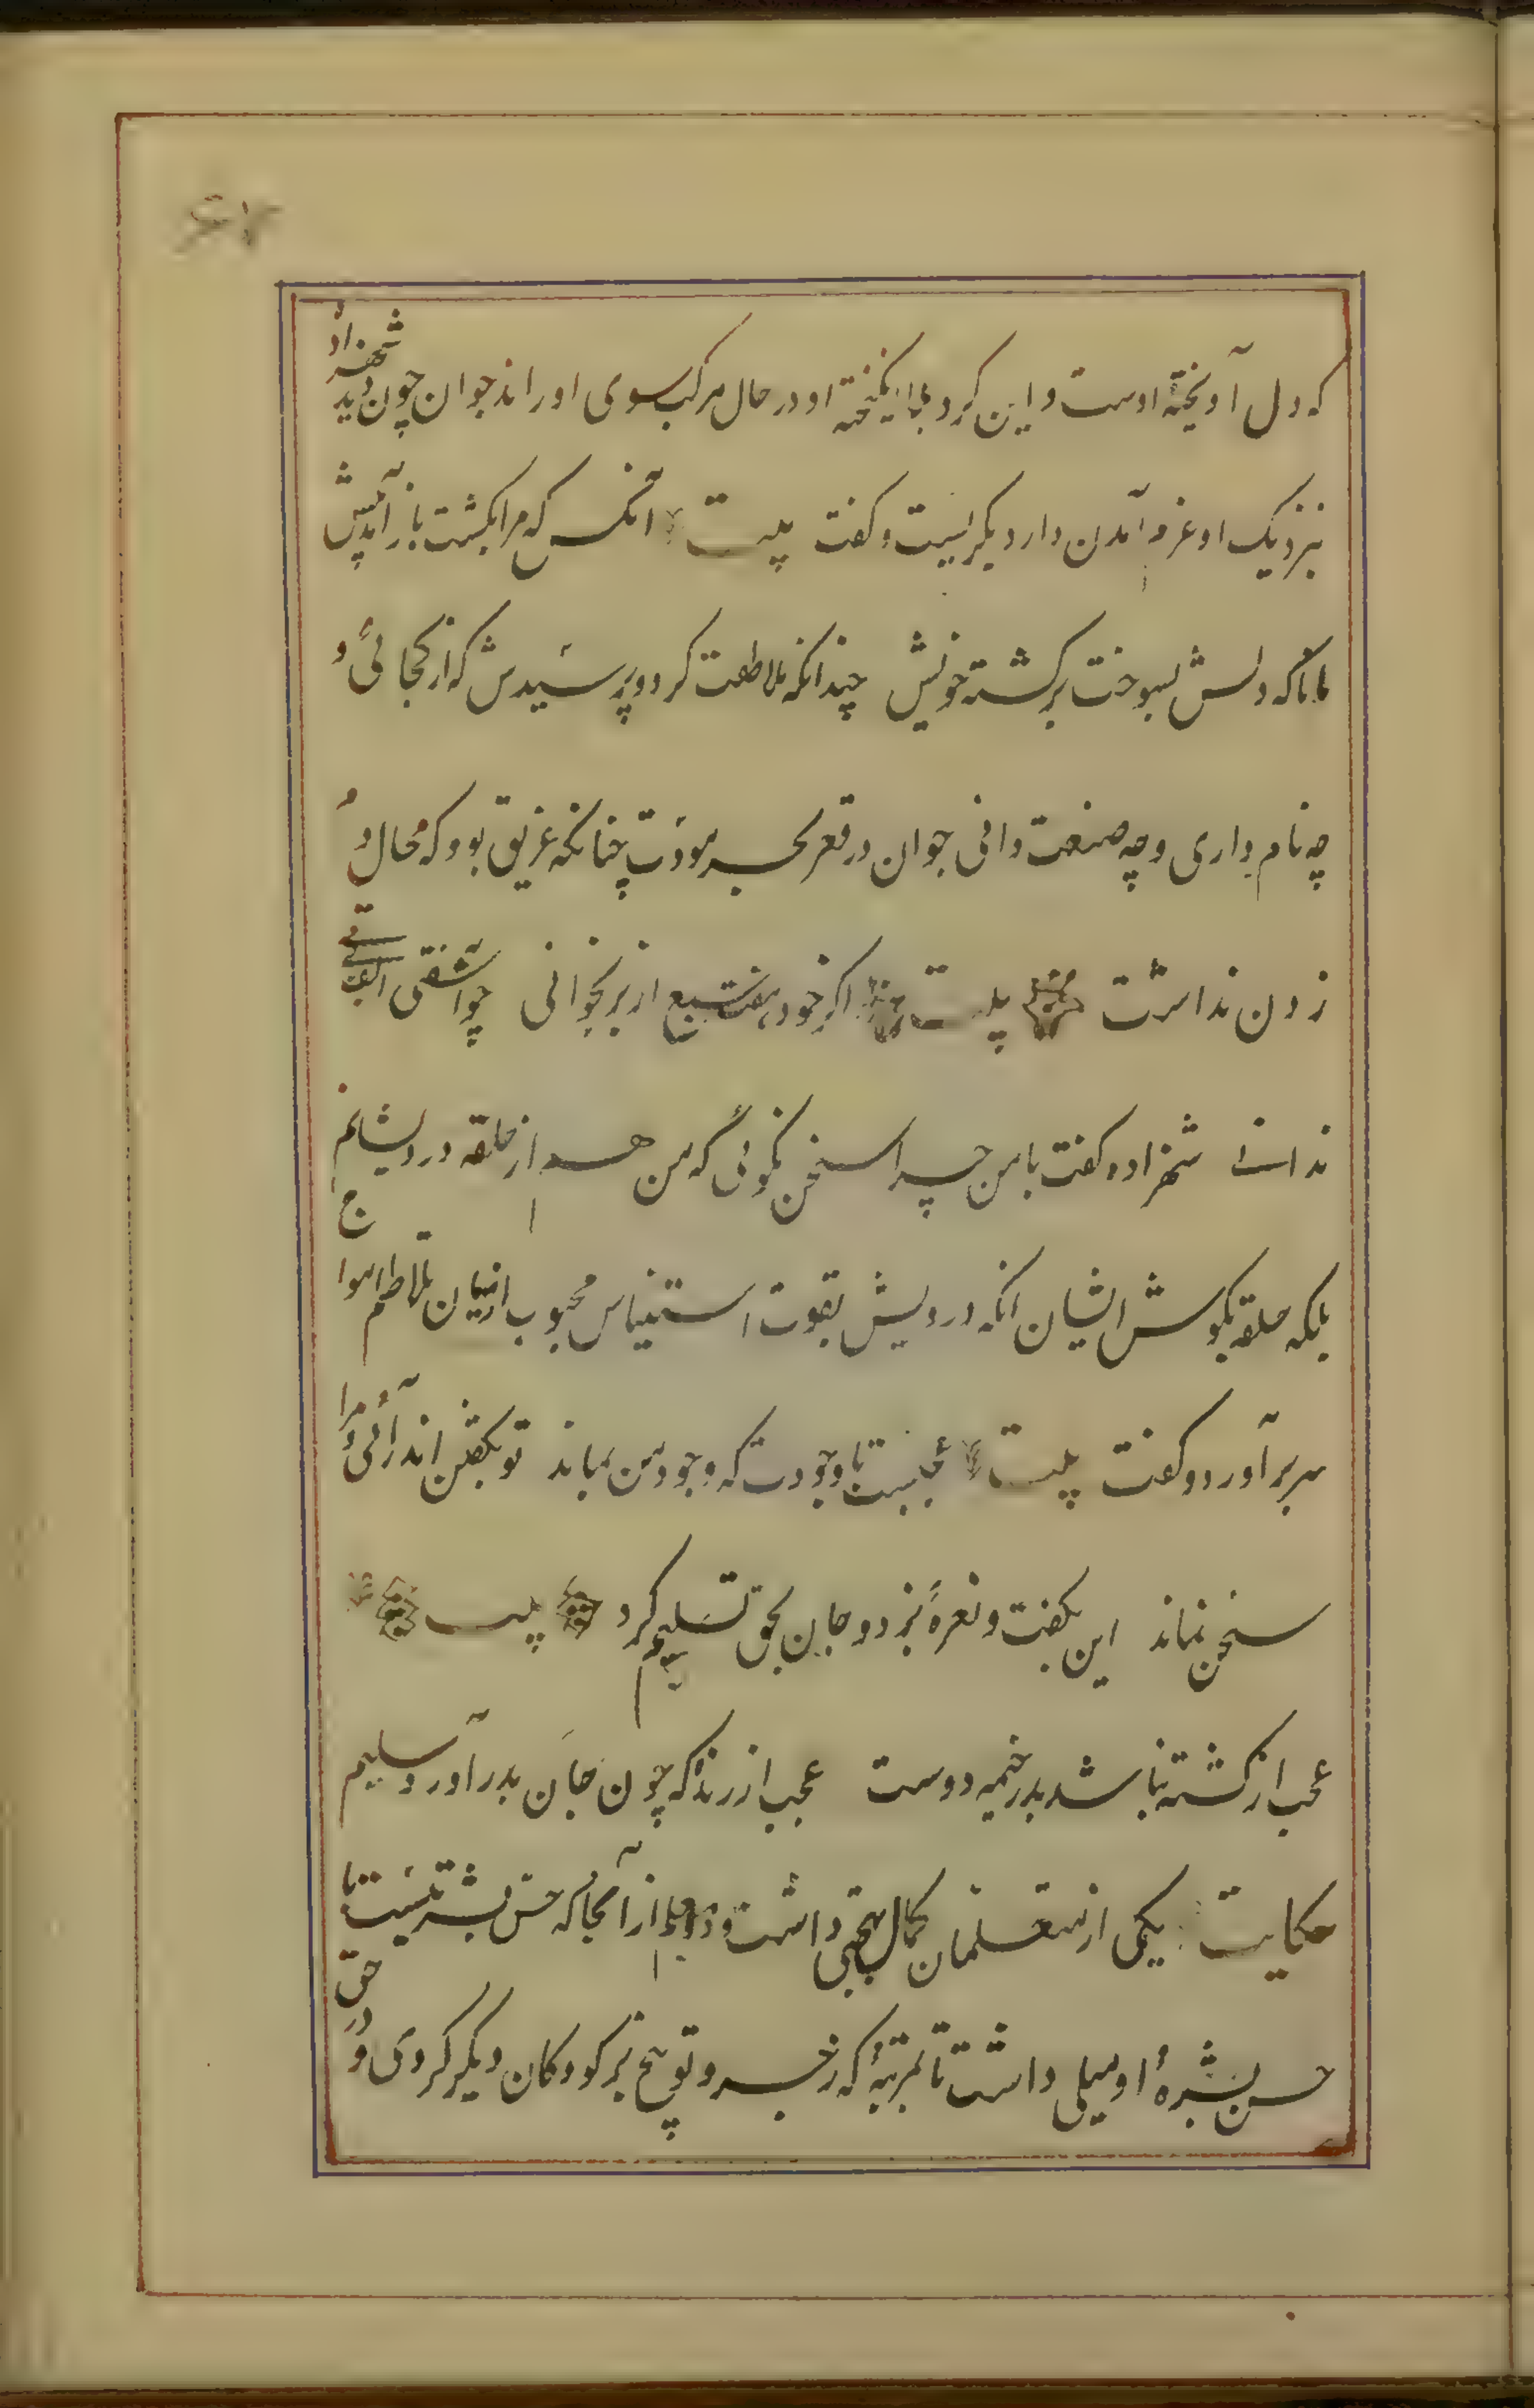 که دل آویخته اوست و این کرد بلا انگیخته او در حال مرکب سوی او راند جوان چون دید شهزاده
بنزدیک او عزم آمدن دارد بگریست و گفت بیت انکس که مرا بکشت باز آمد پیش
مانا که دلش بسوخت بر کشته خویش چندانکه ملاطفت کرد و پرسیدش که از کجائی و
چه نام داری و چه صنعت دانی جوان در قعر بحر مودت چنانکه غریق بود که مجال
زدن نداشت بیت اگر خود هفت سبع از بر بخوانی چو آشفتی الف بی تی
ندانی شهزاده گفت با من چرا سخن نگوئی که من هم از حلقه درویشانم
بلکه حلقه بگوش ایشان انکه درویش بقوت استیناس محبوب از میان تلاطم امواج
سر بر آورد و گفت بیت عجبست با وجودت که وجود من بماند تو بگفتن اندر آئی و مرا
سخن بماند این بگفت و نعرهٔ بزد و جان بحق تسلیم کرد بیت
عجب از کشته نباشد بدر خیمه دوست عجب از زنده که چون جان بدر آورد سلیم
حکایت یکی از متعلمان کمال بهجتی داشت و معلم از آنجا که حس بشریتست با
حسن بشرهٔ او میلی داشت تا بمرتبهٔ که زجر و توبیخ بر کودکان دیگر کردی و در حق